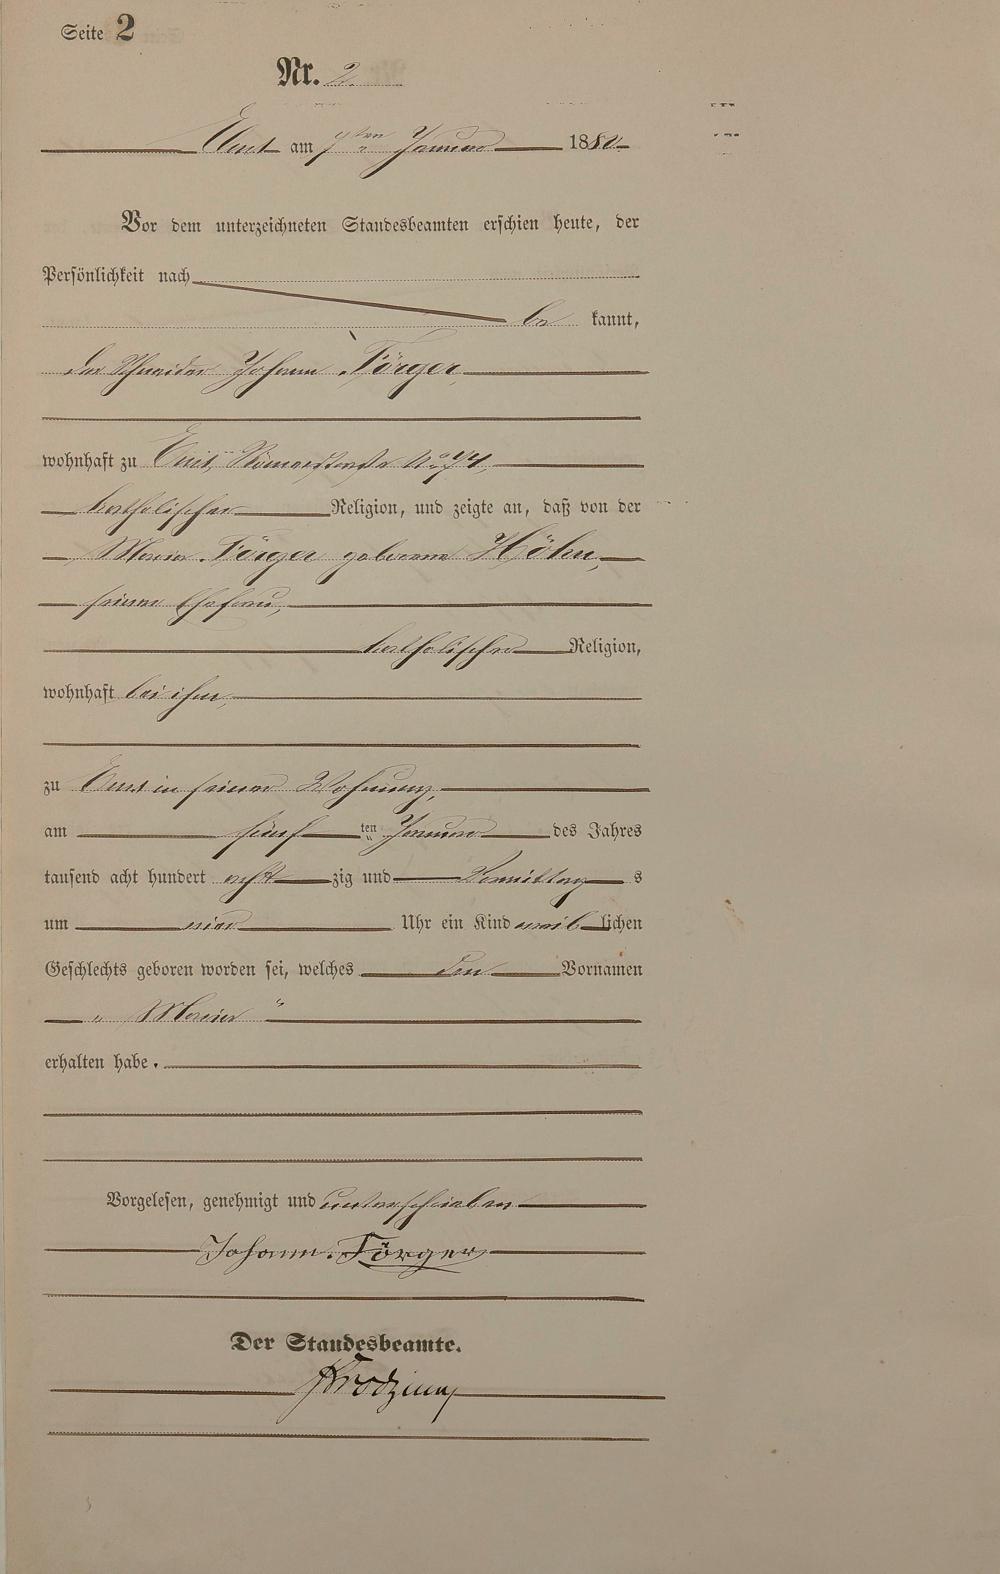 Seite 2
Nr. 2.
Ems am 7ten Januar 1880
Vor dem unterzeichneten Standesbeamten erschien heute, der
Persönlichkeit nach
be kannt,
der Schneider Johann Förger,
wohnhaft zu Ems, Römerstraße No 74,
katholischer Religion, und zeigte an, daß von der
Maria Förger geborene Höhn,
seiner Ehefrau,
katholischer Religion,
wohnhaft bei ihm,
zu Ems in seiner Wohnung,
am fünf ten Januar des Jahres
tausend acht hundert acht zig und Vormittag s
um vier Uhr ein Kind weib lichen
Geschlechts geboren worden sei, welches den Vornamen
„ Maria “
erhalten habe.
Vorgelesen, genehmigt und unterschrieben
Johann Förger
Der Standesbeamte.